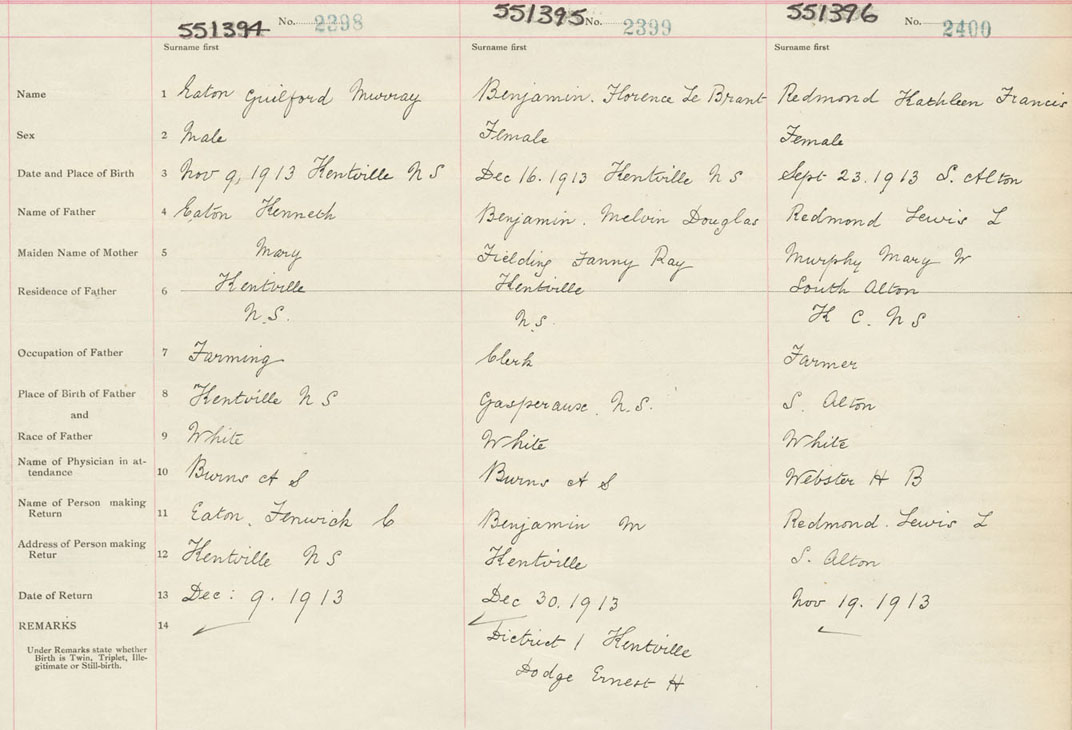 551394 No. 2398 551395 No. 2399 551396 No. 2400
Surname first Surname first Surname first
Name 1 Eaton Guilford Murray Benjamin. Florence Le Brant Redmond Kathleen Francis
Sex 2 Male Female Female
Date and Place of Birth 3 Nov 9, 1913 Kentville N S Dec 16. 1913 Kentville N S Sept 23. 1913 S. Alton
Name of Father 4 Eaton Kenneth Benjamin. Melvin Douglas Redmond Lewis L
Maiden Name of Mother 5 Mary Fielding Fanny Ray Murphy Mary W
Residence of Father 6 Kentville Kentville South Alton
N.S. N.S. K C. N S
Occupation of Father 7 Farming Clerk Farmer
Place of Birth of Father 8 Kentville N S Gasperause. N.S. S. Alton
and
Race of Father 9 White White White
Name of Physician in at-
tendance 10 Burns A S Burns A S Webster H B
Name of Person making
Return 11 Eaton. Fenwick C Benjamin M Redmond. Lewis L
Address of Person making
Retur 12 Kentville N S Kentville S. Alton
Date of Return 13 Dec: 9. 1913 Dec 30. 1913 Nov 19. 1913
REMARKS 14
Under Remarks state whether
Birth is Twin, Triplet, Ille-
gitimate or Still-birth.
District 1 Kentville
Dodge Ernest H